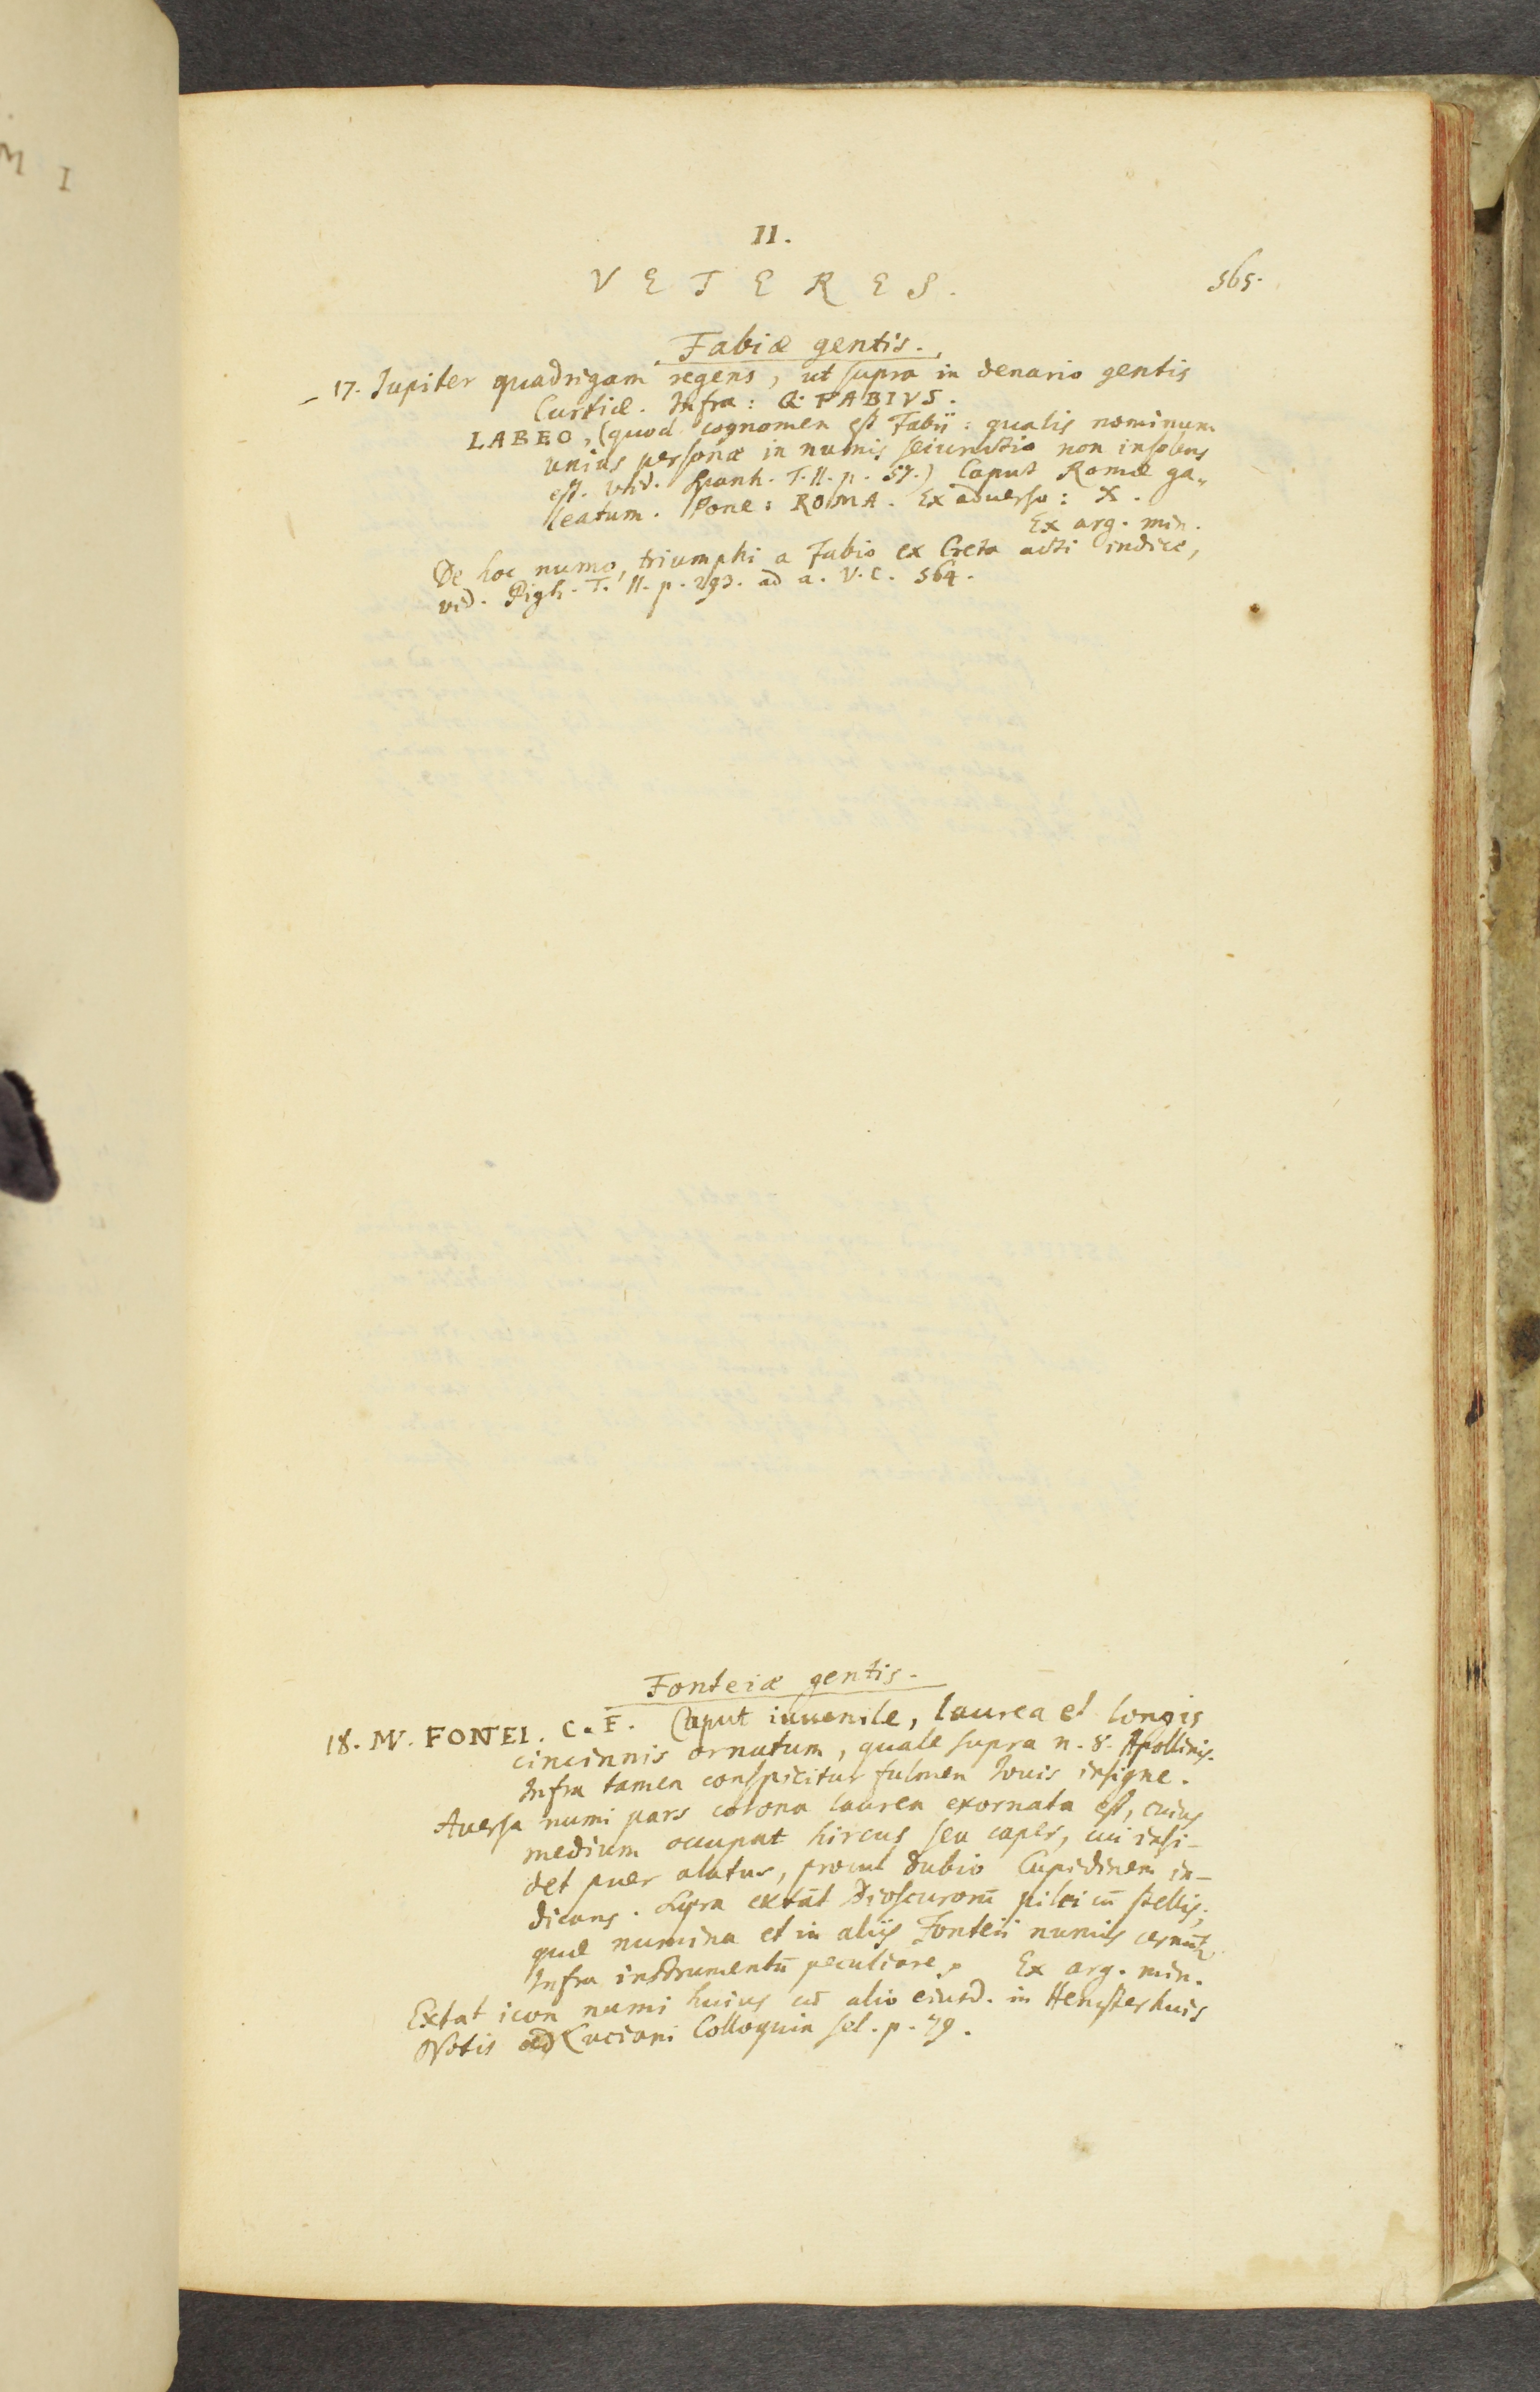 M I
II.
VETERES.
565.
Fabiæ gentis.
17. Iupiter quadrigam regens, ut supra in denario gentis
Curtiæ. Infra: Q. FABIVS.
LABEO, (quod cognomen est Fabii: qualis nominum
unius personæ in numis seiunctio non insolens
est. vid. Spanh. T. II. p. 57.) Caput Romæ ga„
leatum. Pone: ROMA. Ex adverso: X.
Ex arg. min.
De hoc numo, triumphi a Fabio ex Creta acti indice,
vid. Pigh. T. II. p. 293. ad a. V. C. 564.
Fonteiæ gentis.
18. M. FONTEI. C. F. Caput iuvenile, laurea et longis
cincinnis ornatum, quale supra n. 8. Apollinis.
Infra tamen conspicitur fulmen Iovis insigne.
Aversa numi pars corona laurea exornata est, cuius
medium occupat hircus seu caper, cui insi-
det puer alatus, procul dubio Cupidinem in-
dicans. Supra extāt Dioscurorū pilei cū stellis,
quæ numina et in aliis Fonteii numis cernūt
Infra instrumentū peculiare. Ex arg. min.
Extat icon numi huius cū alio eiusd. in Hemsterhuis
Notis ad Luciani Colloquia sel. p. 79.